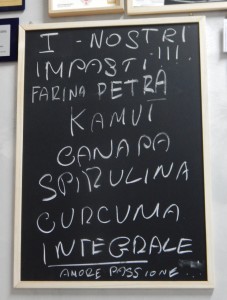 I - NOSTRI
IMPASTI!!!
FARINA PETRA
KAMUT
CANAPA
SPIRULINA
CURCUMA
INTEGRALE
AMORE PASSIONE...